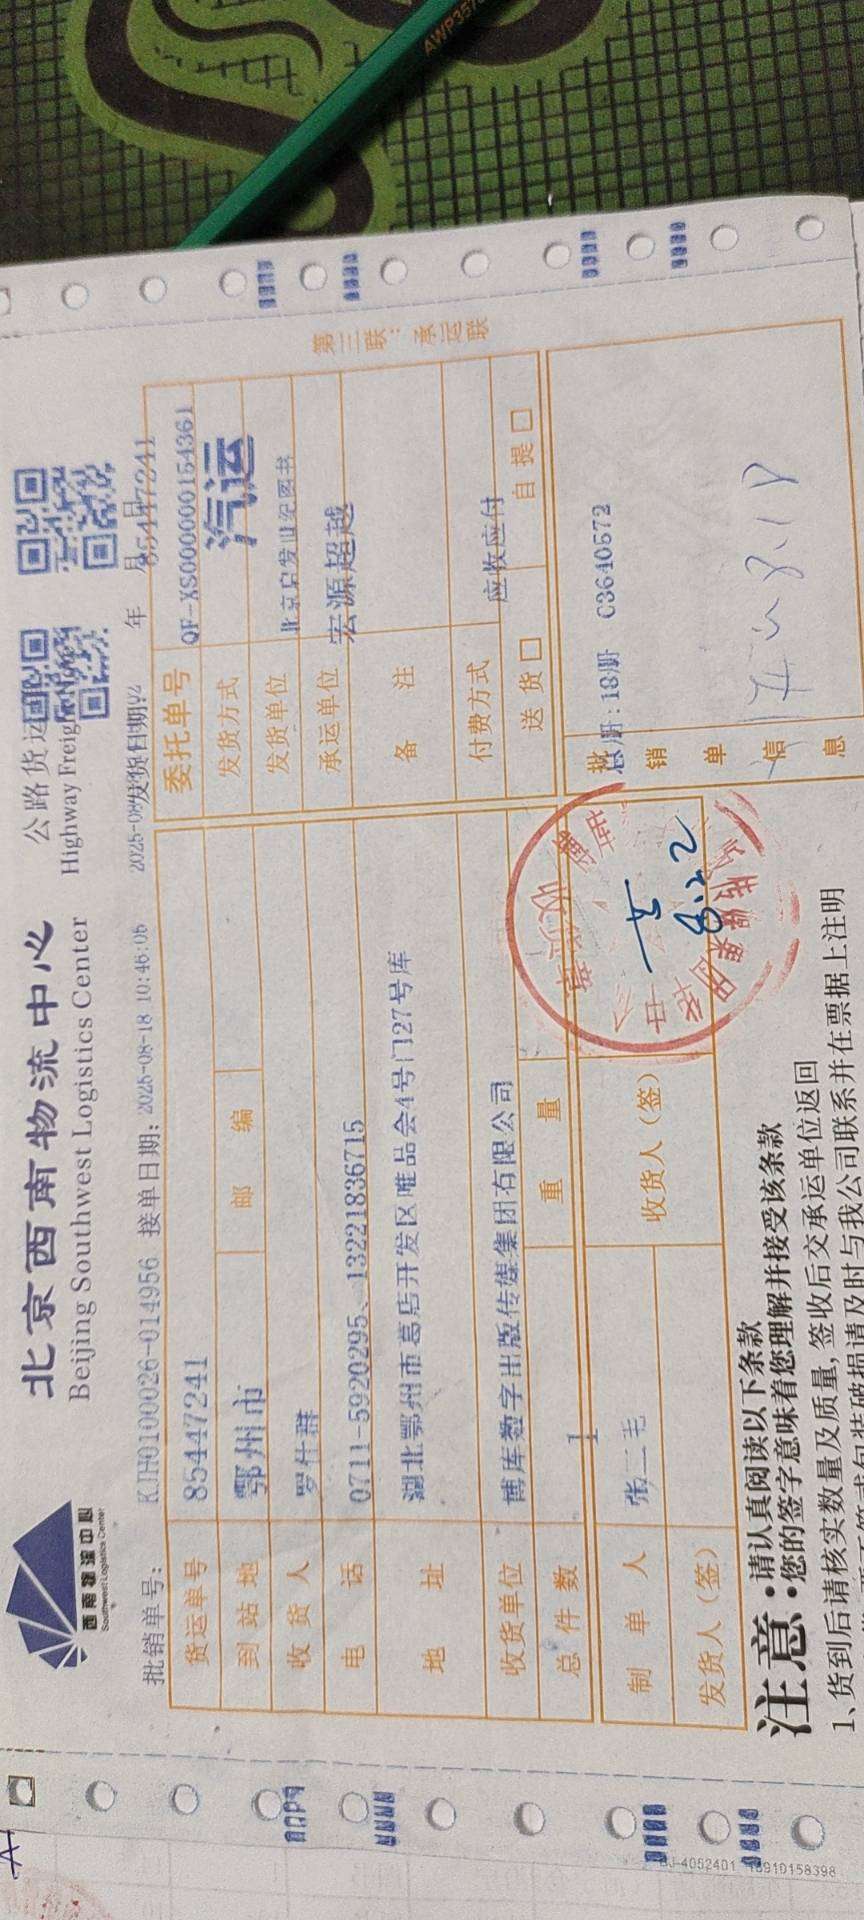 AWP357
西南物流中心
Southwest Logistics Center
北京西南物流中心
Beijing Southwest Logistics Center
公路货运
Highway Freight
批销单号: KJH0100026-014956 接单日期: 2025-08-18 10:46:06 发货日期 年 月 日
85447241
货运单号 85447241
委托单号 QF-XS0000000154361
到站地 鄂州市 邮编
发货方式 汽运
收货人 罗仕群
发货单位 北京启发世纪图书
电话 0711-5920295、13221836715
承运单位 宏源超越
地址 湖北鄂州市葛店开发区唯品会4号门27号库
备注
收货单位 博库数字出版传媒集团有限公司
付费方式 应收应付
总件数 1 重量
送货□ 自提□
第三联:承运联
制单人 张二毛
收货人(签)
8.22
发货人(签)
批销单信息
总册:18册 C3640572
注意
•请认真阅读以下条款
•您的签字意味着您理解并接受该条款
1、货到后请核实数量及质量,签收后交承运单位返回
请及时与我公司联系并在票据上注明
4052401 18910158398